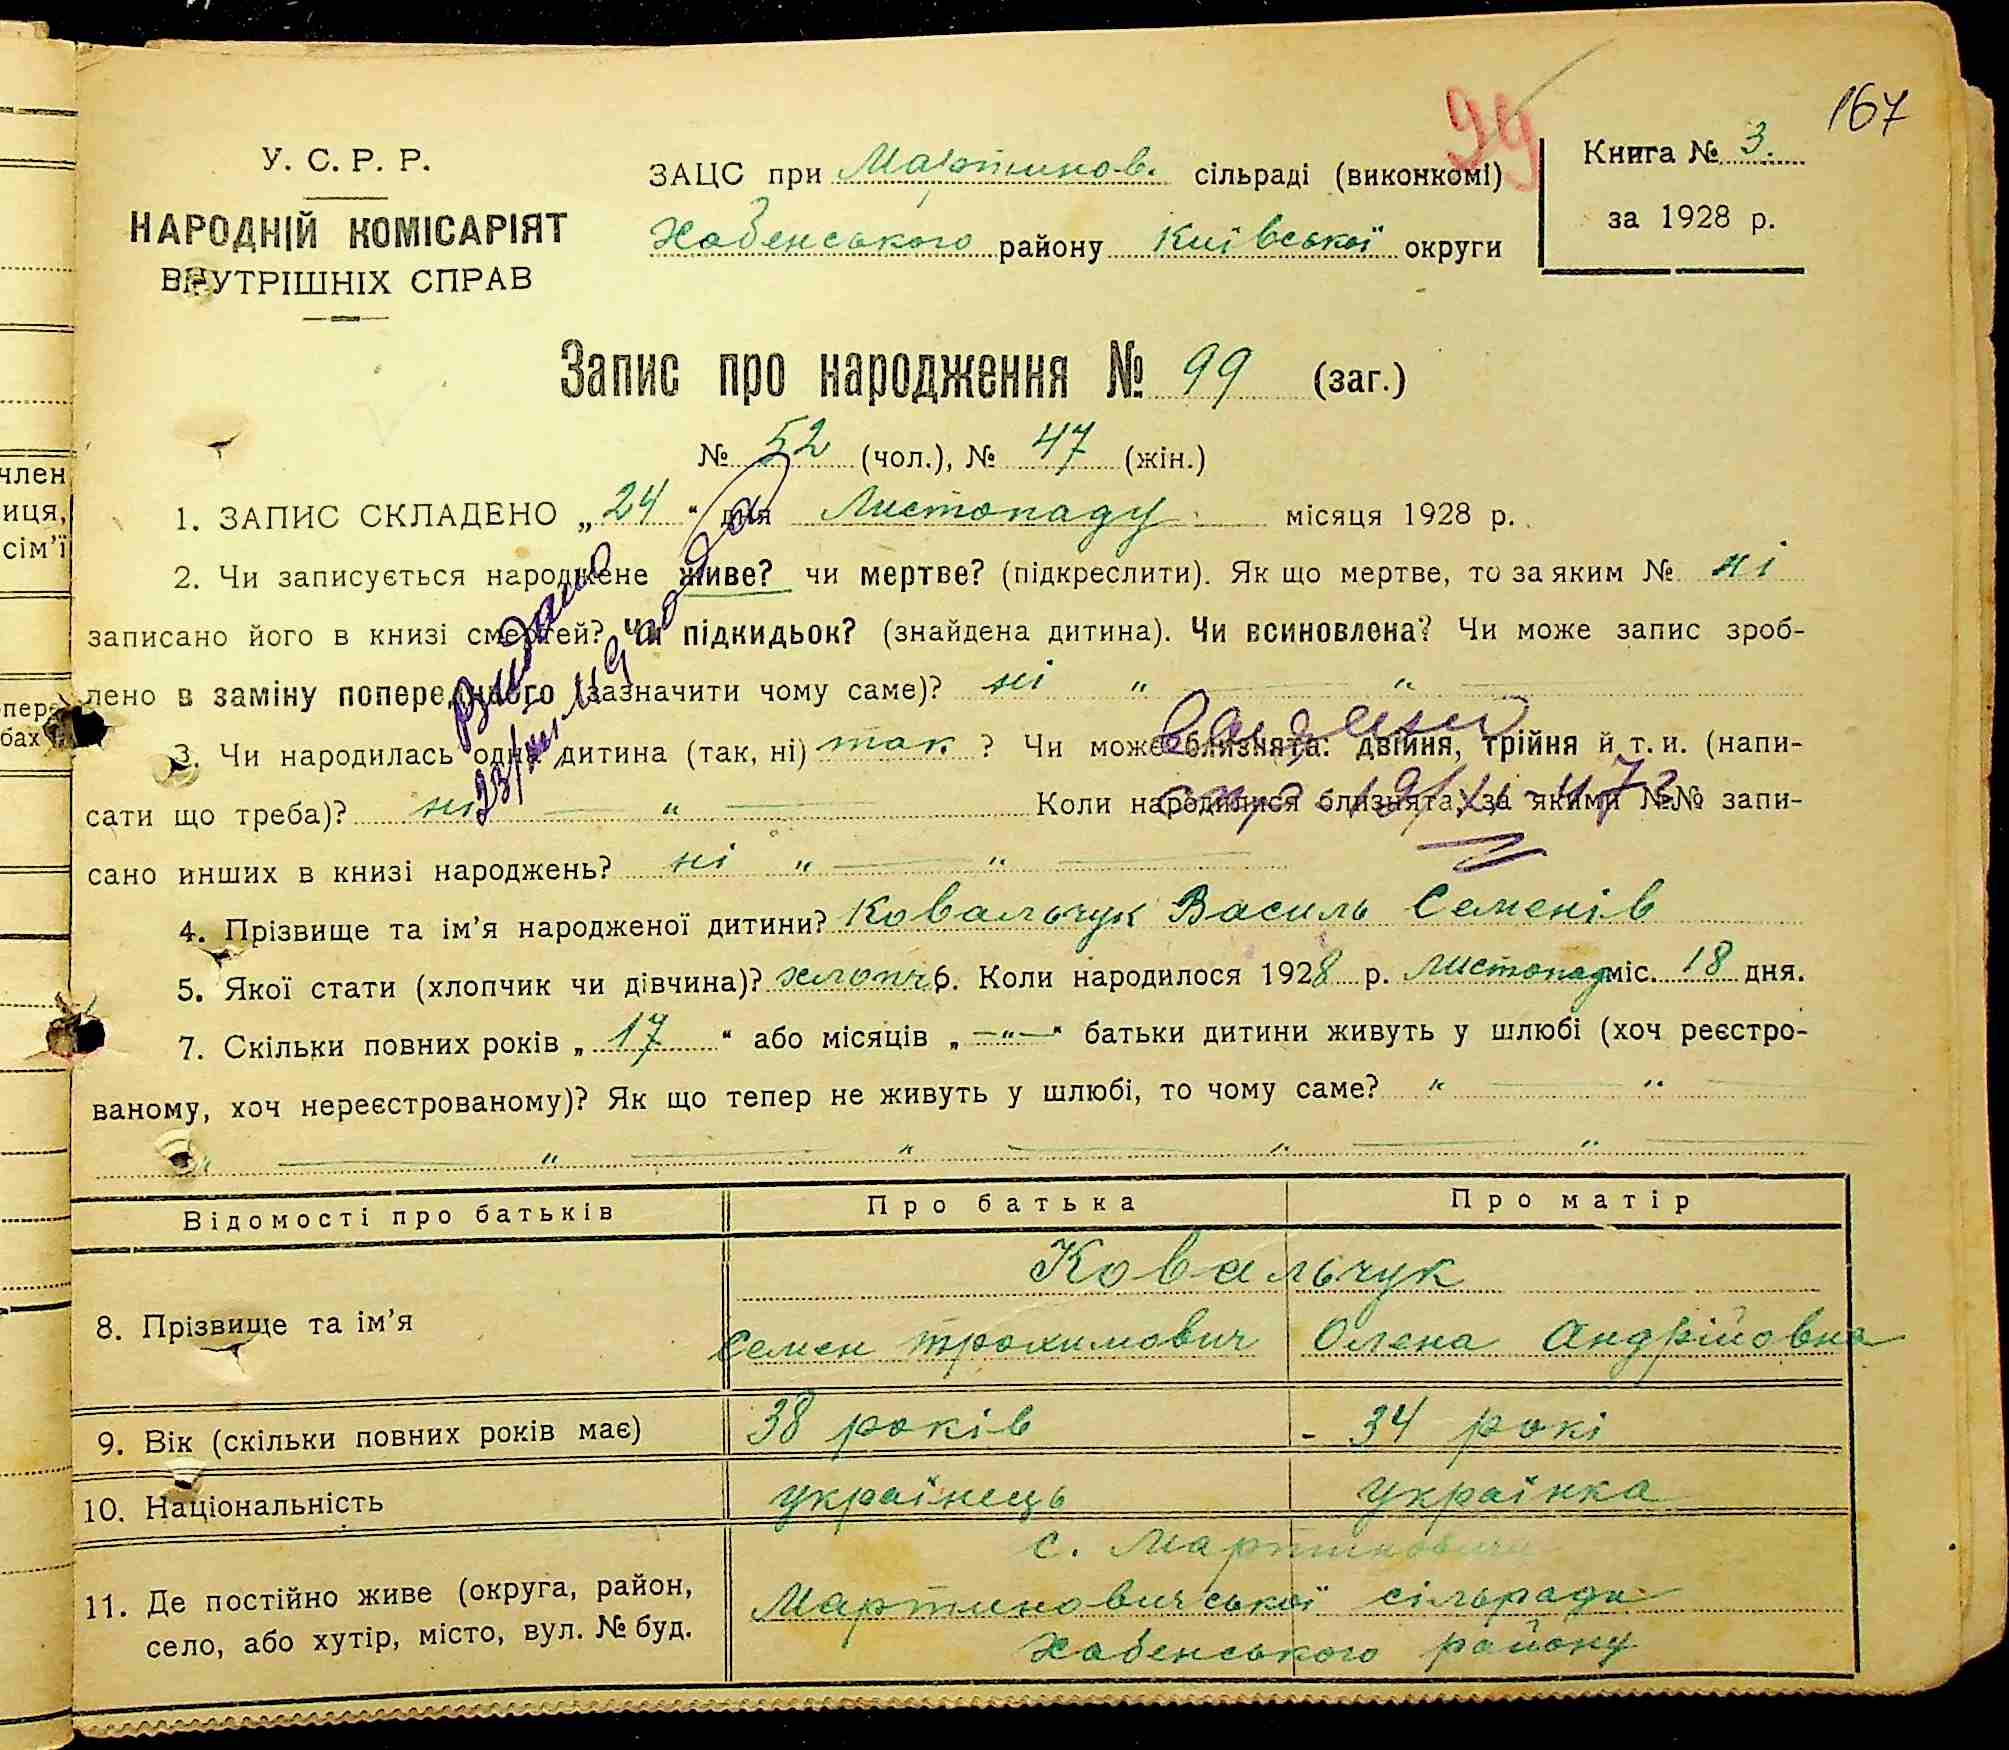 167
99
У. С. Р. Р.
НАРОДНІЙ КОМІСАРІЯТ
ВНУТРІШНІХ СПРАВ
ЗАЦС при Мартинов. сільраді (виконкомі)
Хабенського району Київської округи
Книга № 3.
за 1928 р.
Запис про народження № 99 (заг.)
№ 52 (чол.), № 47 (жін.)
1. ЗАПИС СКЛАДЕНО „ 24 “ дня Листопаду місяця 1928 р.
2. Чи записується народжене живе? чи мертве? (підкреслити). Як що мертве, то за яким № ні
записано його в книзі смертей? Чи підкидьок? (знайдена дитина). Чи всиновлена? Чи може запис зроб-
лено в заміну попереднього (зазначити чому саме)? ні „ — „ —
Видано
3. Чи народилась одна дитина (так, ні) так ? Чи може близнята: двійня, трійня й т. и. (напи-
сати що треба)? ні — „ — Коли народилися близнята, за якими №№ запи-
сано инших в книзі народжень? ні „ — „ —
4. Прізвище та ім’я народженої дитини? Ковальчук Василь Семенів
5. Якої стати (хлопчик чи дівчина)? хлопч 6. Коли народилося 1928 р. листопад міс. 18 дня.
7. Скільки повних років „ 17 “ або місяців „ —„— “ батьки дитини живуть у шлюбі (хоч реєстро-
ваному, хоч нереєстрованому)? Як що тепер не живуть у шлюбі, то чому саме? „ — „ —
„ — „ — „ — „ — „ —
Відомості про батьків Про батька Про матір
Ковальчук
8. Прізвище та ім’я Семен Трохимович Олена Андрійовна
9. Вік (скільки повних років має) 38 років - 34 рокі
10. Національність українець українка
с. Мартиновичи
11. Де постійно живе (округа, район, Мартиновичської сільради
село, або хутір, місто, вул. № буд. Хабенського району
член
иця,
сім’ї
пере
бах